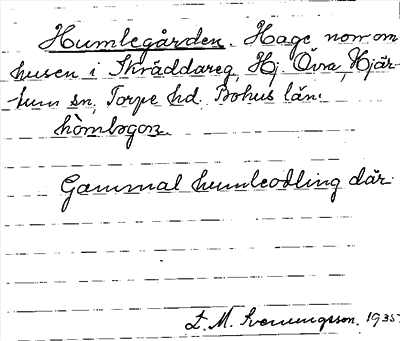 Humlegården. Hage norr om
husen i Skräddareg. Hj. Övra, Hjär-
tum sn, Torpe hd. Bohus län.
Gammal humleodling där.
L. M. Svenungsson. 1935